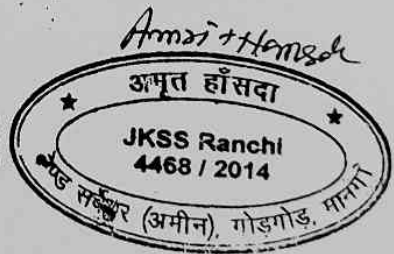 Amrit Hansda
अमृत हाँसदा
JKSS Ranchi
4468 / 2014
लैण्ड सर्वेयर (अमीन), गोड़गोड़, मानगो